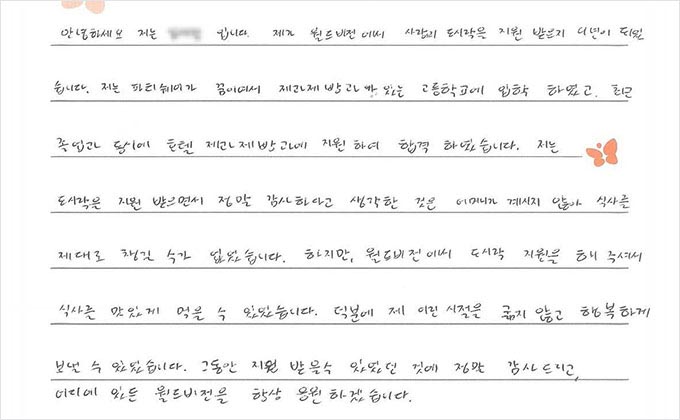 안녕하세요 저는 입니다. 제가 월드비전에서 사랑의 도시락을 지원 받은지 11년이 되었
습니다. 저는 파티쉐이가 꿈이여서 제과제빵과가 있는 고등학교에 입학 하였고, 최근
졸업과 동시에 호텔 제과제빵과에 지원하여 합격 하였습니다. 저는
도시락을 지원 받으면서 정말 감사하다고 생각한 것은 어머니가 계시지 않아 식사를
제대로 챙긴 수가 없었습니다. 하지만, 월드비전에서 도시락 지원을 해 주셔서
식사를 맛있게 먹을 수 있었습니다. 덕분에 제 어린시절을 굶지 않고 행복하게
보낼 수 있었습니다. 그동안 지원 받을수 있었던 것에 정말 감사드리고,
어디에 있든 월드비전을 항상 응원하겠습니다.